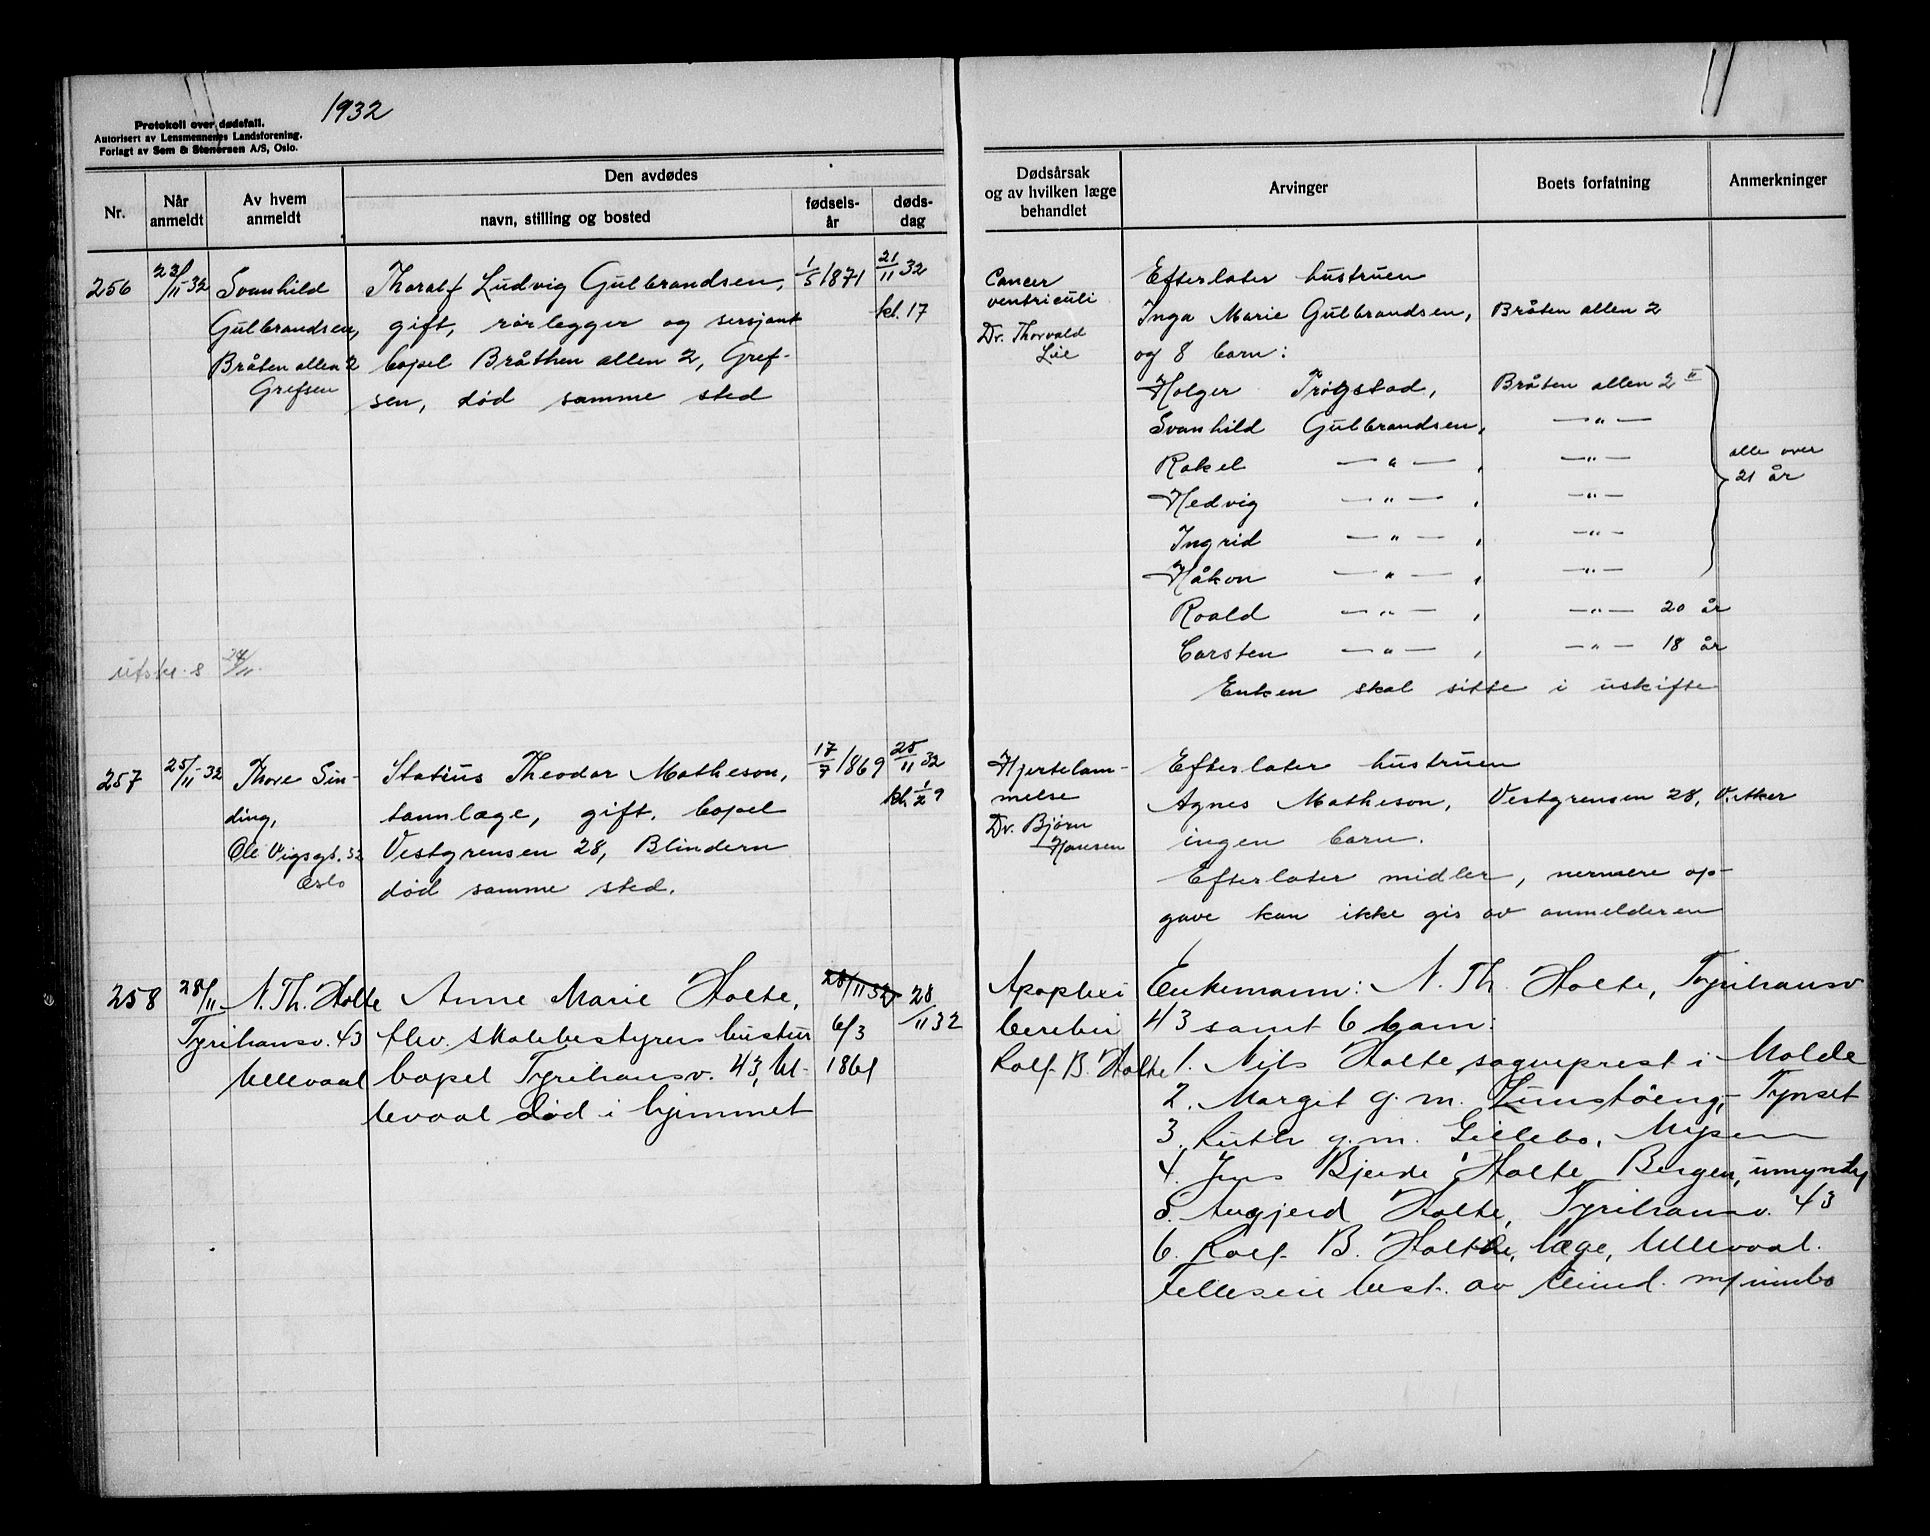 1932
Protokoll over dødsfall.
Autorisert av Lensmennenes Landsforening.
Forlagt av Sem & Stenersen A/S, Oslo.
Nr.
Når anmeldt
Av hvem anmeldt
Den avdødes
navn, stilling og bosted
fødsels-år
døds-dag
Dødsårsak og av hvilken læge behandlet
Arvinger
Boets forfatning
Anmerkninger
256
23/11 32
Svanhild
Gulbrandsen,
Bråten allen 2
Grefsen
Thoralf Ludvig Gulbrandsen,
gift, rørlegger og sersjant
bopel Bråthen allen 2, Gref-
sen, død samme sted
1/5 1871
21/11 32
kl. 17
Cancer
ventriculi
Dr. Thorvald
Lie
Efterlater hustruen
Inga Marie Gulbrandsen, Bråten allen 2
og 8 barn:
Holger Trøgstad, Bråten allen 2 II
Svanhild Gulbrandsen, — " —
Rakel — " — , — " —
Hedvig — " — , — " —
Ingrid — " — , — " —
Håkon — " — , — " —
alle over
21 år
Roald — " — , — " — 20 år
Carsten — " — , — " — 18 år
Enken skal sitte i uskifte
utskr. s 24/11.
257
25/11-32
Thore Sin-
ding,
Ole Vigsgt. 32
Oslo
Statius Theodor Matheson,
tannlæge, gift, bopel
Vestgrensen 28, Blindern
død samme sted.
17/7 1869
25/11 32
kl. 1/2 9
Hjertelam-
melse
Dr. Bjørn
Hansen
Efterlater hustruen
Agnes Matheson, Vestgrensen 28, V. Aker
ingen barn.
Efterlater midler, nermere op-
gave kan ikke gis av anmelderen
258
28/11
N. Th. Holte
Tyrihansv. 43
Ullevaal
Anne Marie Holte,
fhv. skolebestyrers hustru
bopel Tyrihansv. 43, Ul-
levaal død i hjemmet
28/11 32
6/3
1861
28/11 32
Apoplexi
cerebri
Rolf B. Holte
Enkemann: N. Th. Holte, Tyrihansv
43 samt 6 barn:
1. Nils Holte, sogneprest i Molde
2. Margit g. m. Tynset
3. Ruth g. m. Gillebo, Mysen
4. Jens Bjerke Holte, Bergen, umyndig
5. Holte, Tyrihansv. 43
6. Rolf B. Holte, læge, Ullevaal.
best. av